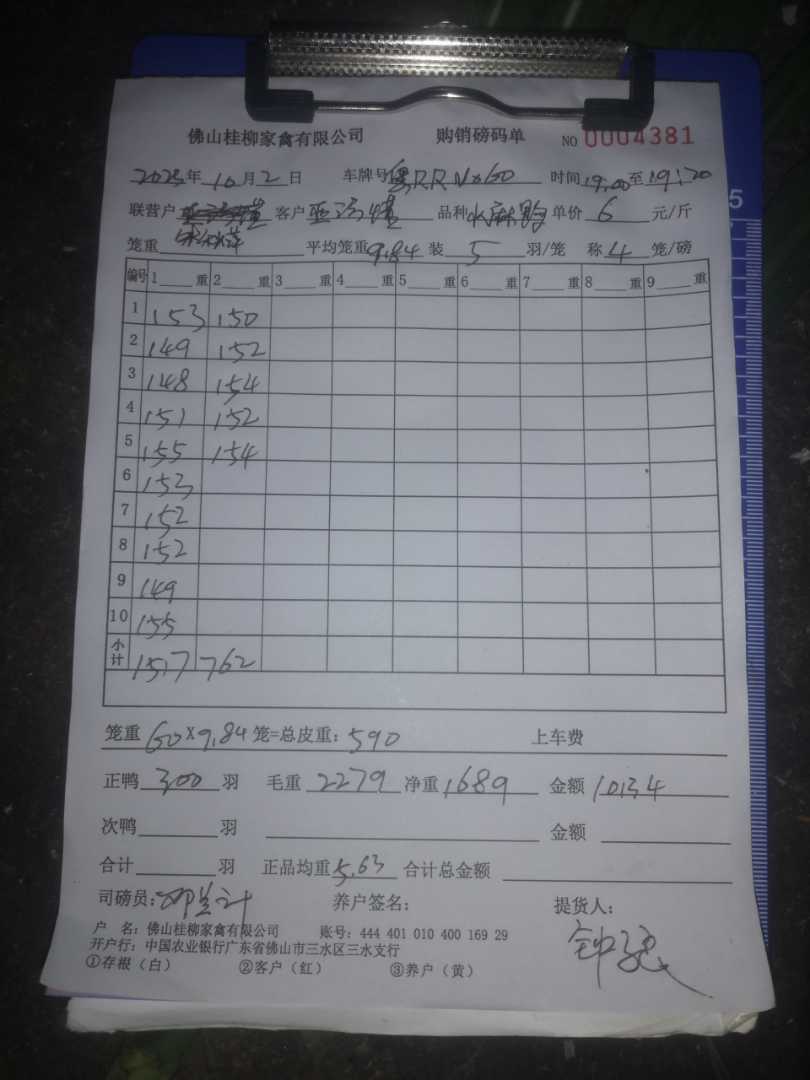 佛山桂柳家禽有限公司 购销磅码单 NO 0004381
2025年10月2日 车牌号粤RRV860 时间19:00至19:20
联营户 客户 品种水麻鸭 单价6元/斤
笼重 平均笼重9.84 装5羽/笼 称4笼/磅
编号 1重 2重 3重 4重 5重 6重 7重 8重 9重
1 153 150
2 149 152
3 148 154
4 151 152
5 155 154
6 153
7 152
8 152
9 149
10 155
小计 1517 762
笼重60×9.84笼=总皮重:590 上车费
正鸭300羽 毛重2279 净重1689 金额10134
次鸭 羽 金额
合计 羽 正品均重5.63 合计总金额
司磅员: 养户签名: 提货人:
户 名:佛山桂柳家禽有限公司 账号:444 401 010 400 169 29
开户行:中国农业银行广东省佛山市三水区三水支行
①存根(白) ②客户(红) ③养户(黄)
5